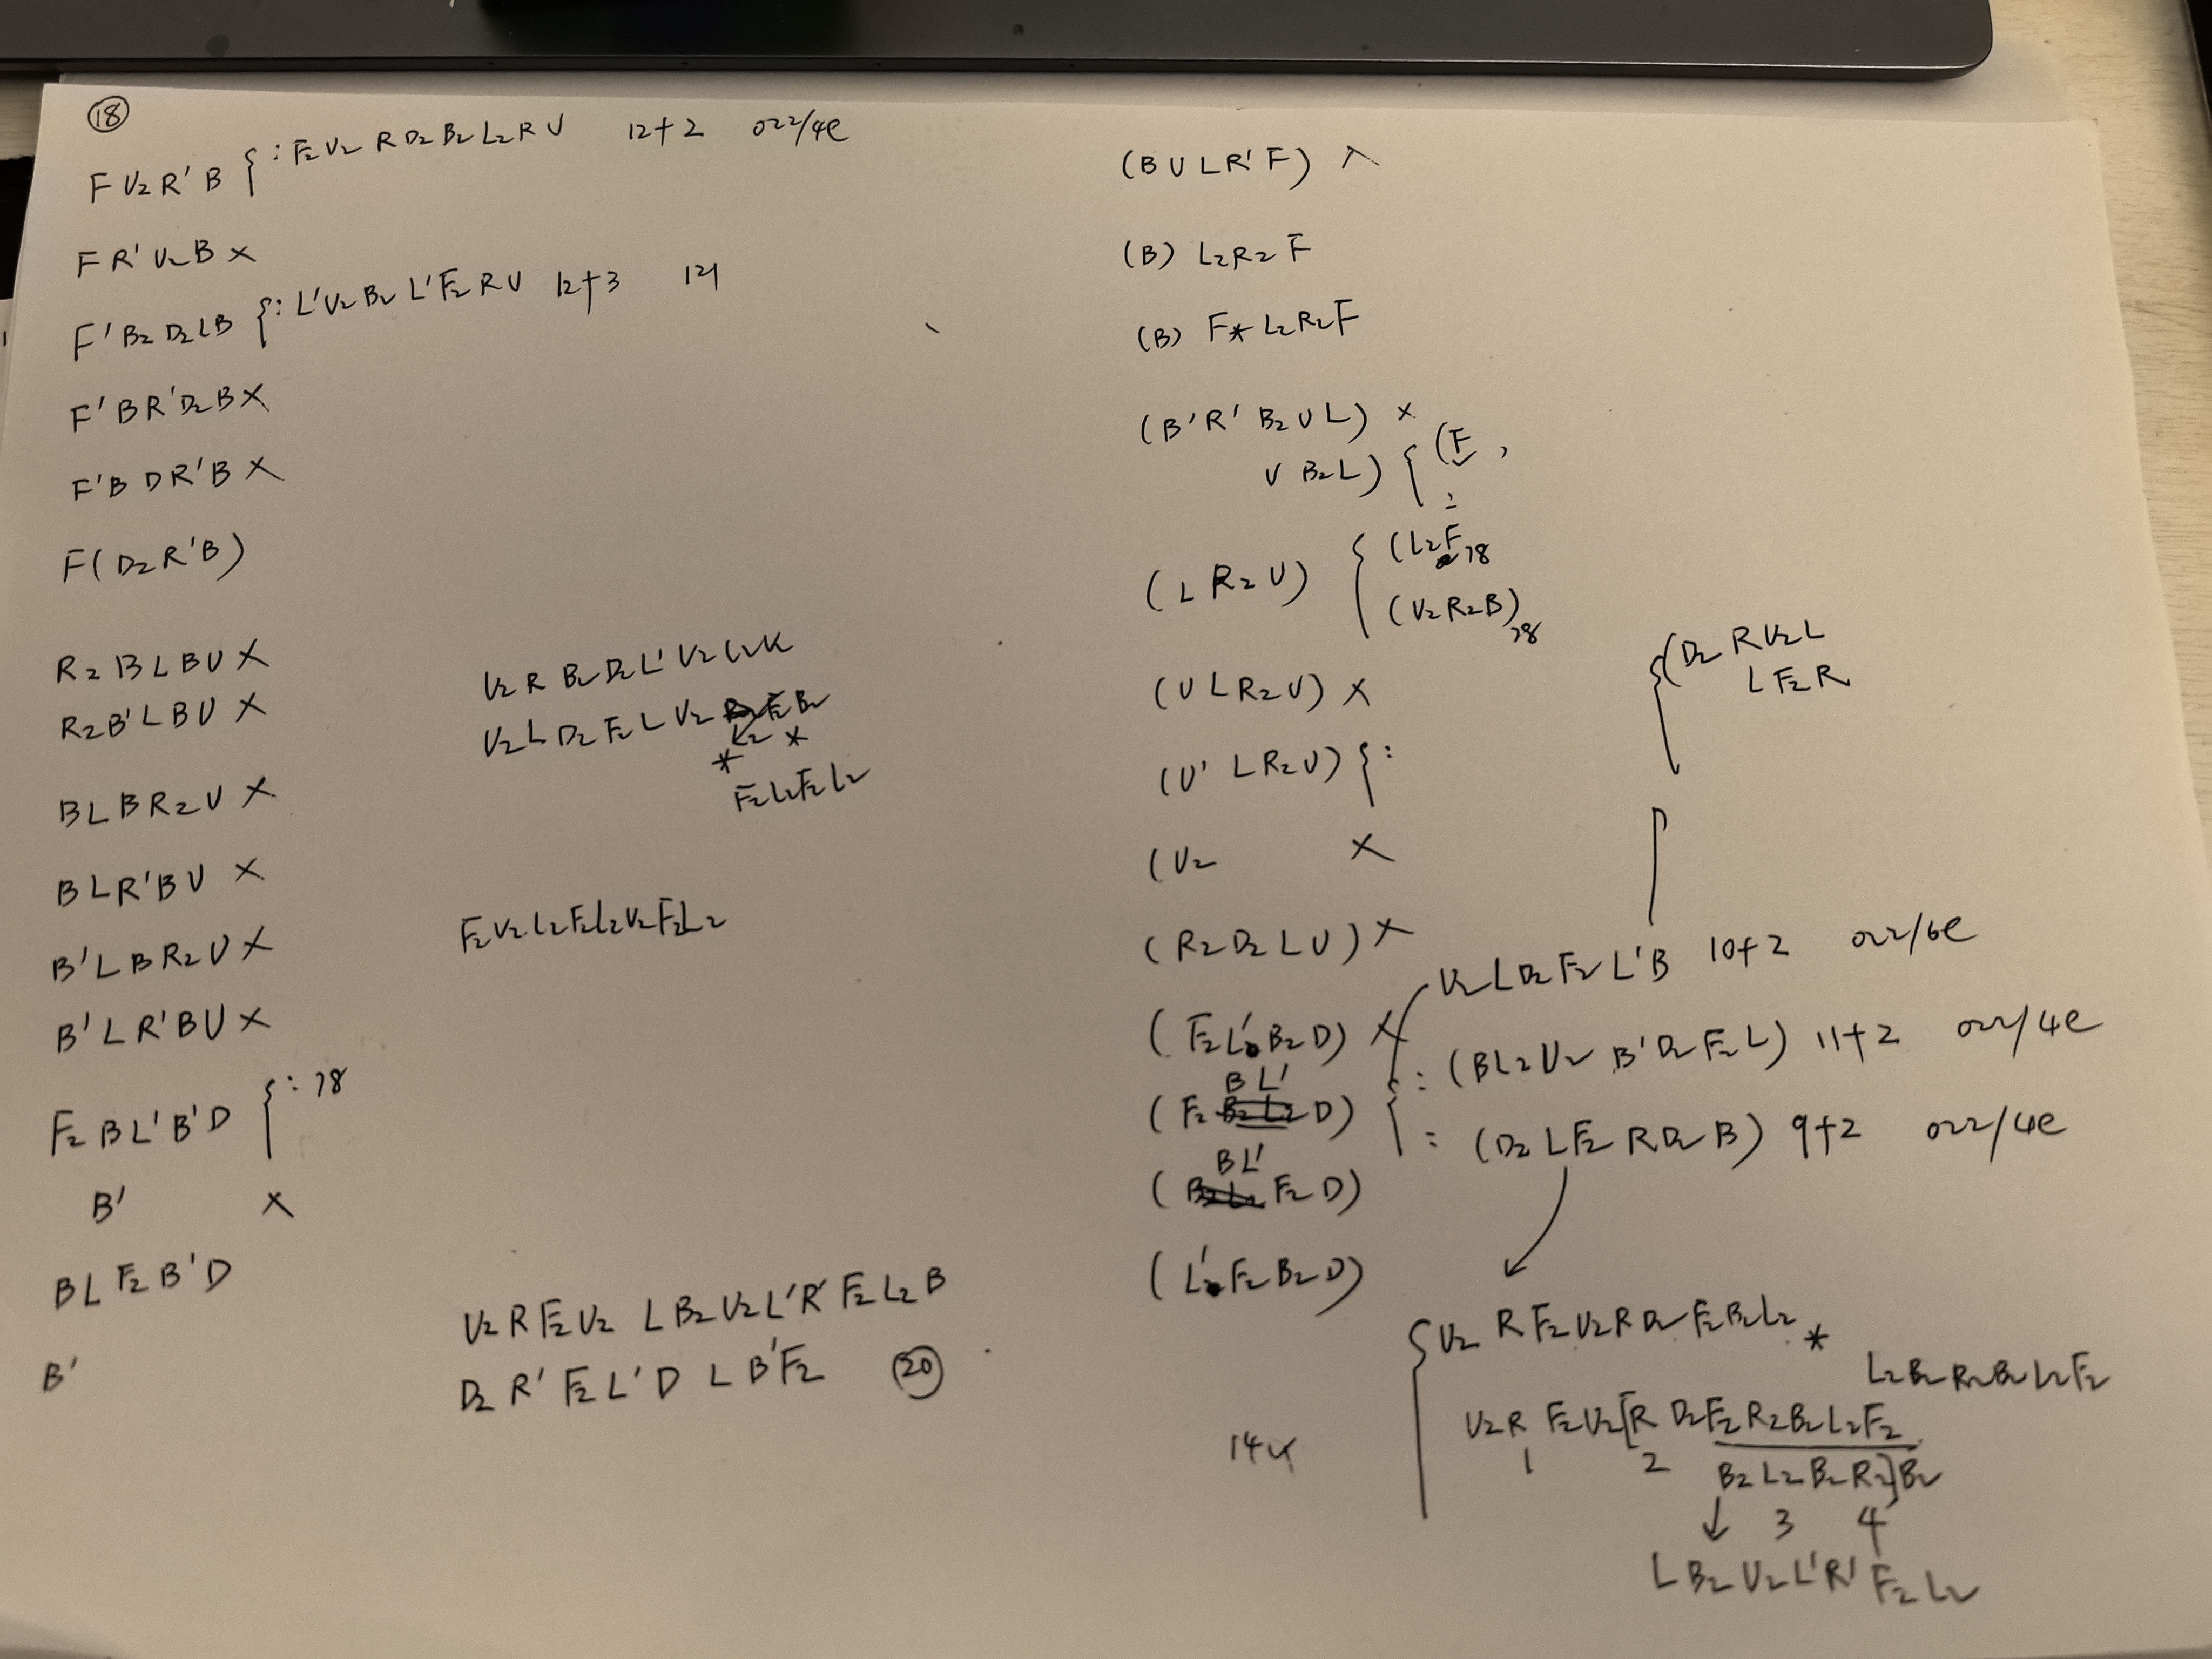 18
F U2 R' B { : F2 U2 R D2 B2 L2 R U 12+2 022/4e
F R' U2 B ×
F' B2 D2 L B { : L' U2 B2 L' F2 R U 12+3 121
F' B R' D2 B ×
F' B D R' B ×
F ( D2 R' B )
R2 B L B U ×
R2 B' L B U ×
B L B R2 U ×
B L R' B U ×
B' L B R2 U ×
B' L R' B U ×
F2 B L' B' D { : 78
B' ×
B L F2 B' D
B'
U2 R B2 D2 L' U2
U2 L D2 F2 L U2 F2 B2
L2 *
*
F2 L2 F2 L2
F2 U2 L2 F2 L2 U2 F2 L2
U2 R F2 U2 L B2 U2 L' R' F2 L2 B
D2 R' F2 L' D L B' F2 20
( B U L R' F )
( B ) L2 R2 F
( B ) F * L2 R2 F
( B' R' B2 U L ) ×
U B2 L ) { ( F ,
:
( L R2 U ) { ( L2 F 78
( U2 R2 B ) 78
( U L R2 U ) ×
( U' L R2 U ) { :
( U2 ×
( R2 D2 L U ) ×
( F2 L' B2 D ) ×
B L'
( F2 D )
B L'
( F2 D )
( L' F2 B2 D )
{ ( D2 R U2 L
L F2 R
U2 L D2 F2 L' B 10+2 022/6e
{ : ( B L2 U2 B' D2 F2 L ) 11+2 022/4e
: ( D2 L F2 R D2 B ) 9+2 022/4e
{ U2 R F2 U2 R D2 F2 B2 L2 *
L2 B2 R2 B2 L2 F2
U2 R F2 U2 [ R D2 F2 R2 B2 L2 F2
1 2 B2 L2 B2 R2 ] B2
↓ 3 4
L B2 U2 L' R' F2 L2